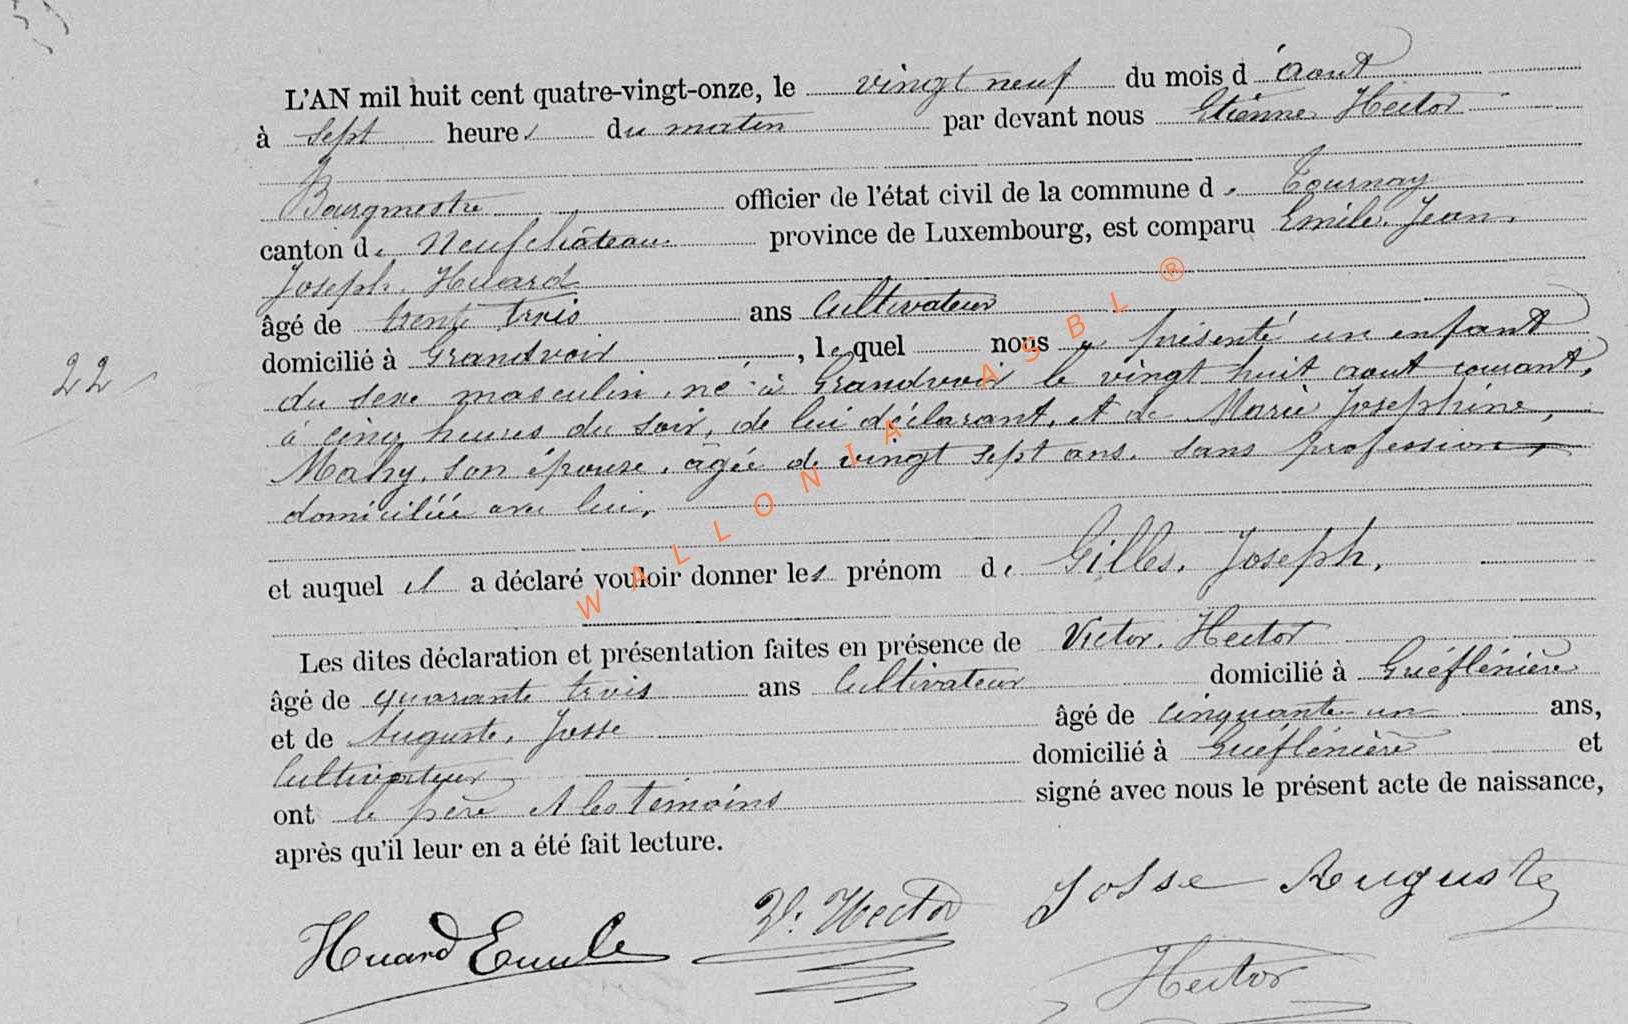 L'AN mil huit cent quatre-vingt-onze, le vingt neuf du mois d'aout
à sept heures du matin par devant nous Etienne Hector
Bourgmestre officier de l'état civil de la commune de Tournay
canton de Neufchâteau province de Luxembourg, est comparu Emile, Jean,
Joseph, Huard
âgé de trente trois ans Cultivateur
domicilié à Grandvoir, lequel nous a présenté un enfant
22
du sexe masculin, né à Grandvoir le vingt huit aout courant,
à cinq heures du soir, de lui déclarant, et de Marie Joséphine,
Mahy, son épouse, âgée de vingt sept ans, sans profession,
domiciliée avec lui,
et auquel il a déclaré vouloir donner les prénom de Gilles, Joseph,
Les dites déclaration et présentation faites en présence de Victor, Hector
âgé de quarante trois ans Cultivateur domicilié à Gruéflénière
et de Auguste, Josse âgé de cinquante-un ans,
Cultivateur domicilié à Gruéflénière et
ont le père et les témoins signé avec nous le présent acte de naissance,
après qu'il leur en a été fait lecture.
Huard Emile V. Hector Josse Auguste
Hector
WALLONIA ASBL ®